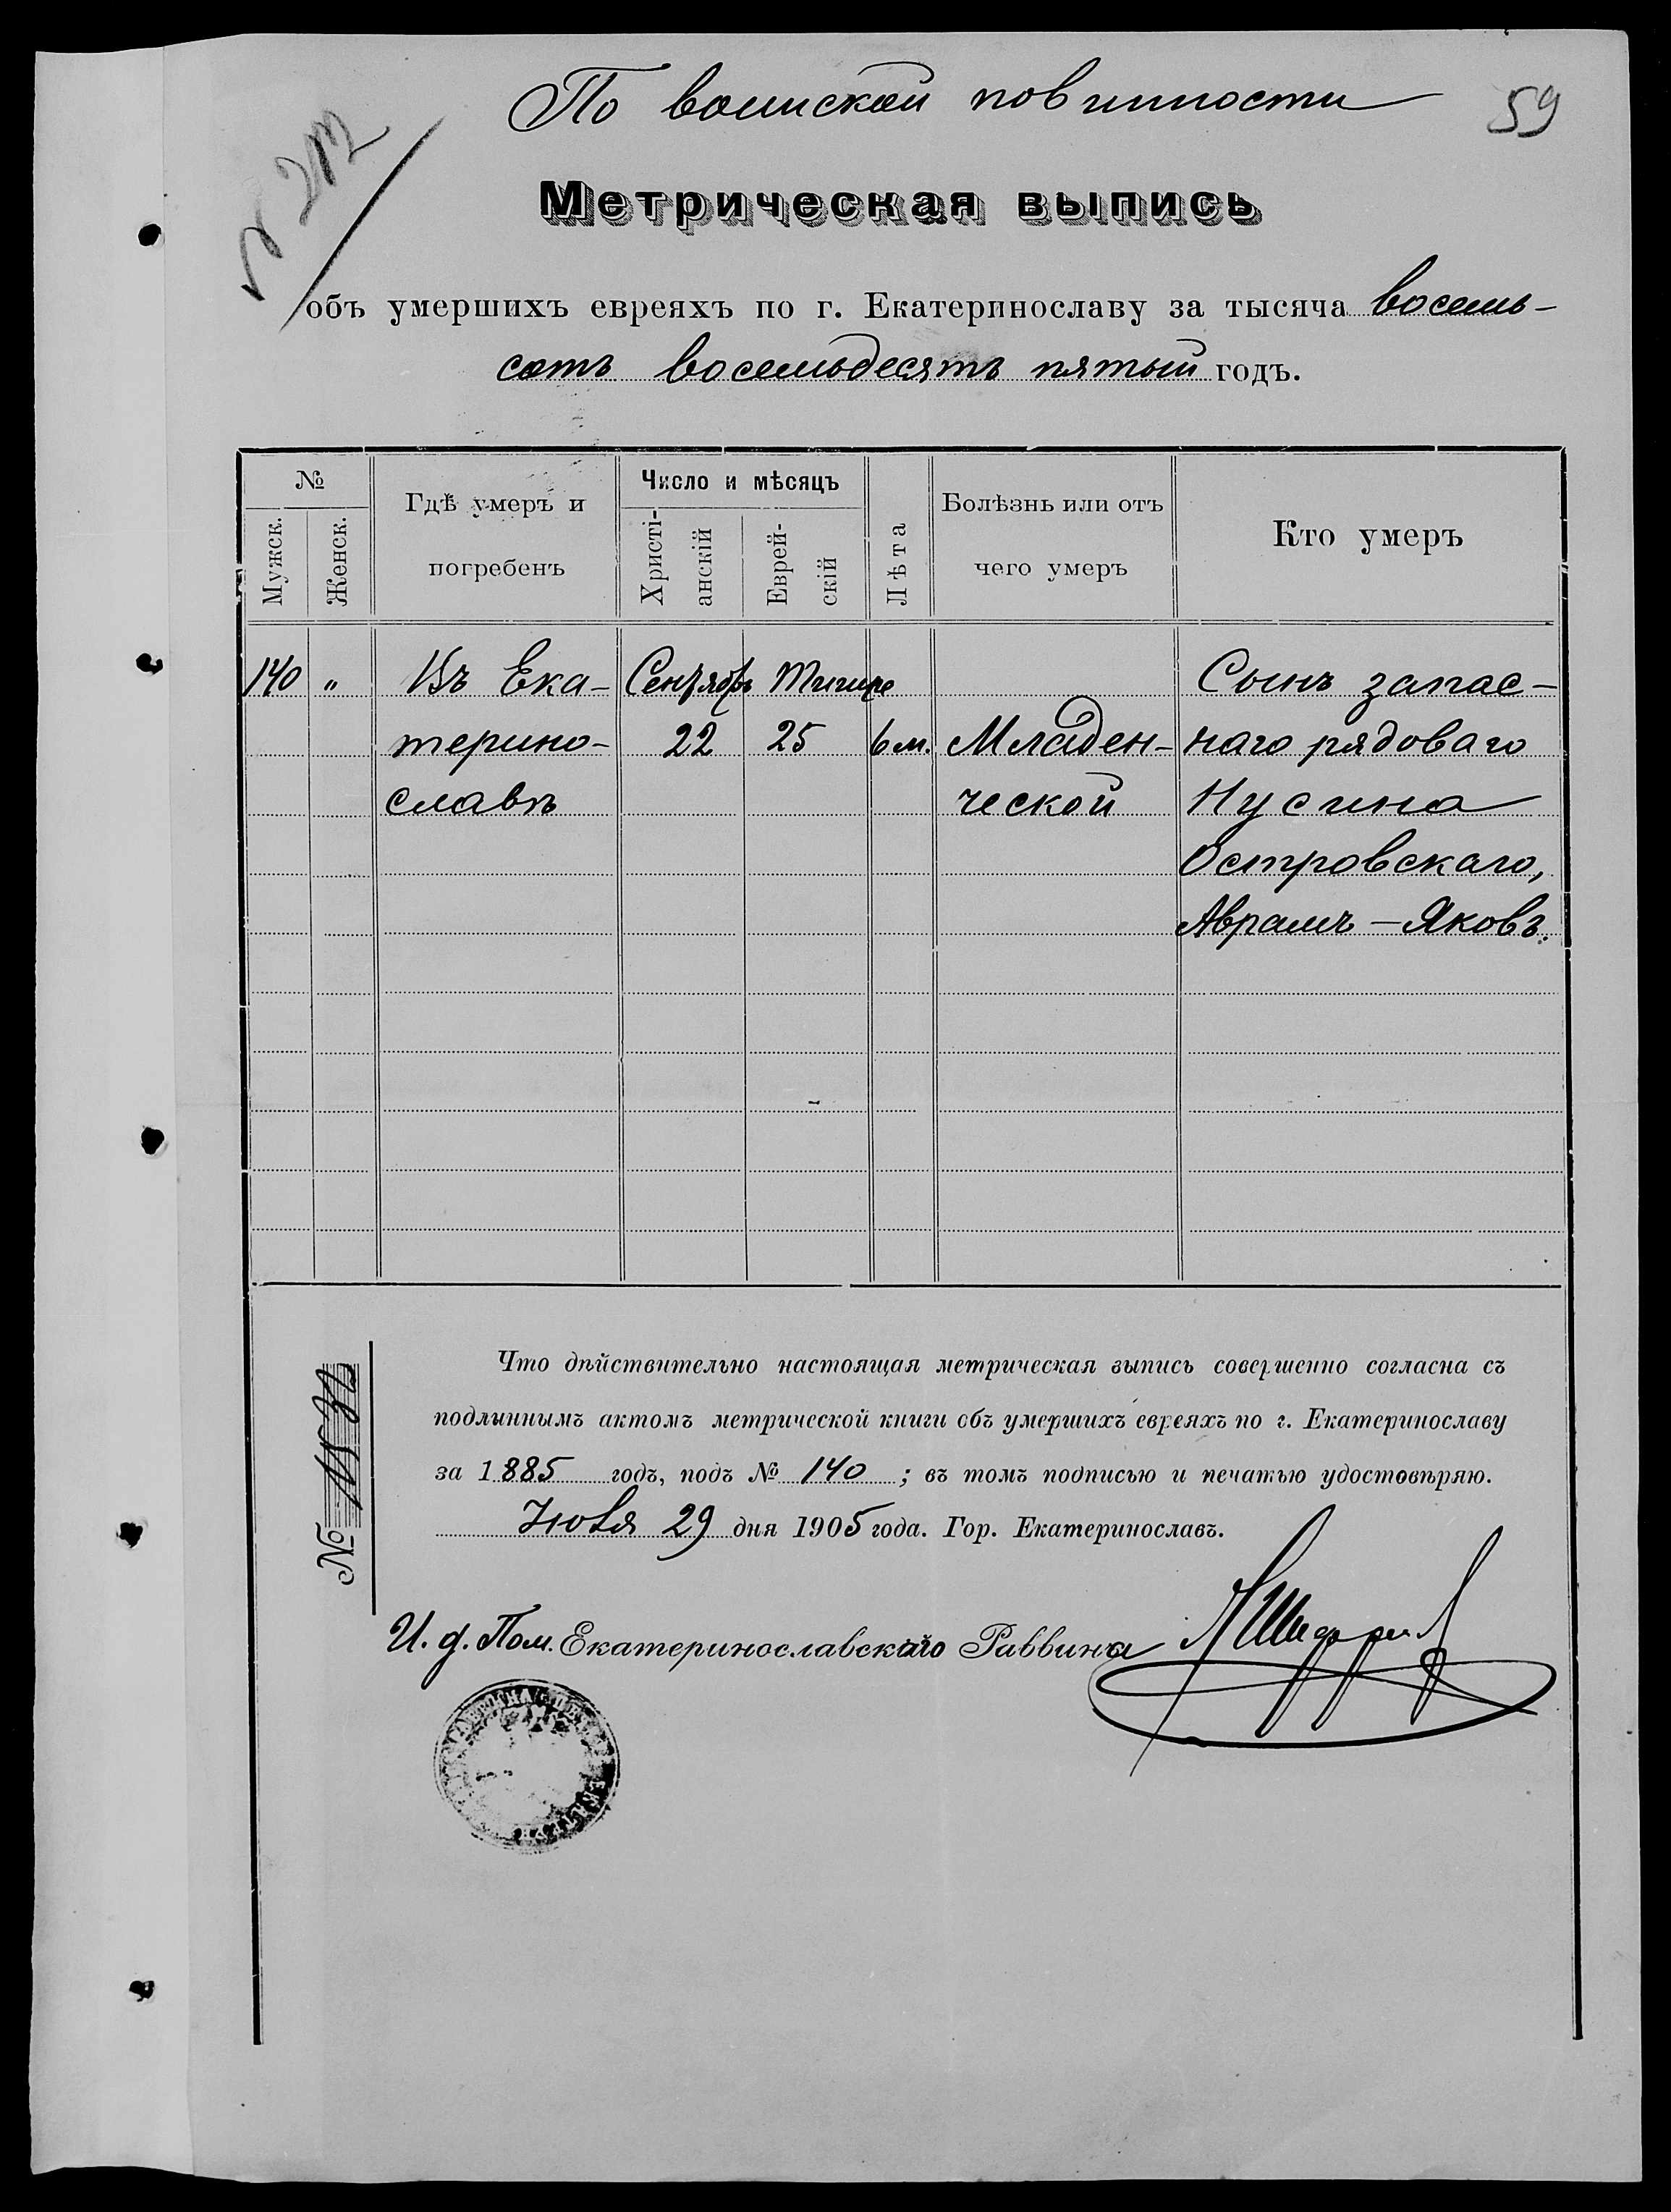 По воинской повинности
59
Метрическая выпись
объ умершихъ евреяхъ по г. Екатеринославу за тысяча восемь-
сотъ восемьдесятъ пятый годъ.
№
Мужск.
Женск.
Гдѣ умеръ и
погребенъ
Число и мѣсяцъ
Христі-
анскій
Еврей-
скій
Лѣта
Болѣзнь или отъ
чего умеръ
Кто умеръ
140 " Въ Ека- Сентябрь Тишре Сынъ запас-
терино- 22 25 6 м. Младен- наго рядоваго
славѣ ческой Нусина
Островскаго,
Аврамъ-Яковъ.
Что дѣйствительно настоящая метрическая выпись совершенно согласна съ
подлиннымъ актомъ метрической книги объ умершихъ евреяхъ по г. Екатеринославу
за 1885 годъ, подъ № 140; въ томъ подписью и печатью удостовѣряю.
29 дня 1905 года. Гор. Екатеринославъ.
№
И. д. Пом. Екатеринославскаго Раввина